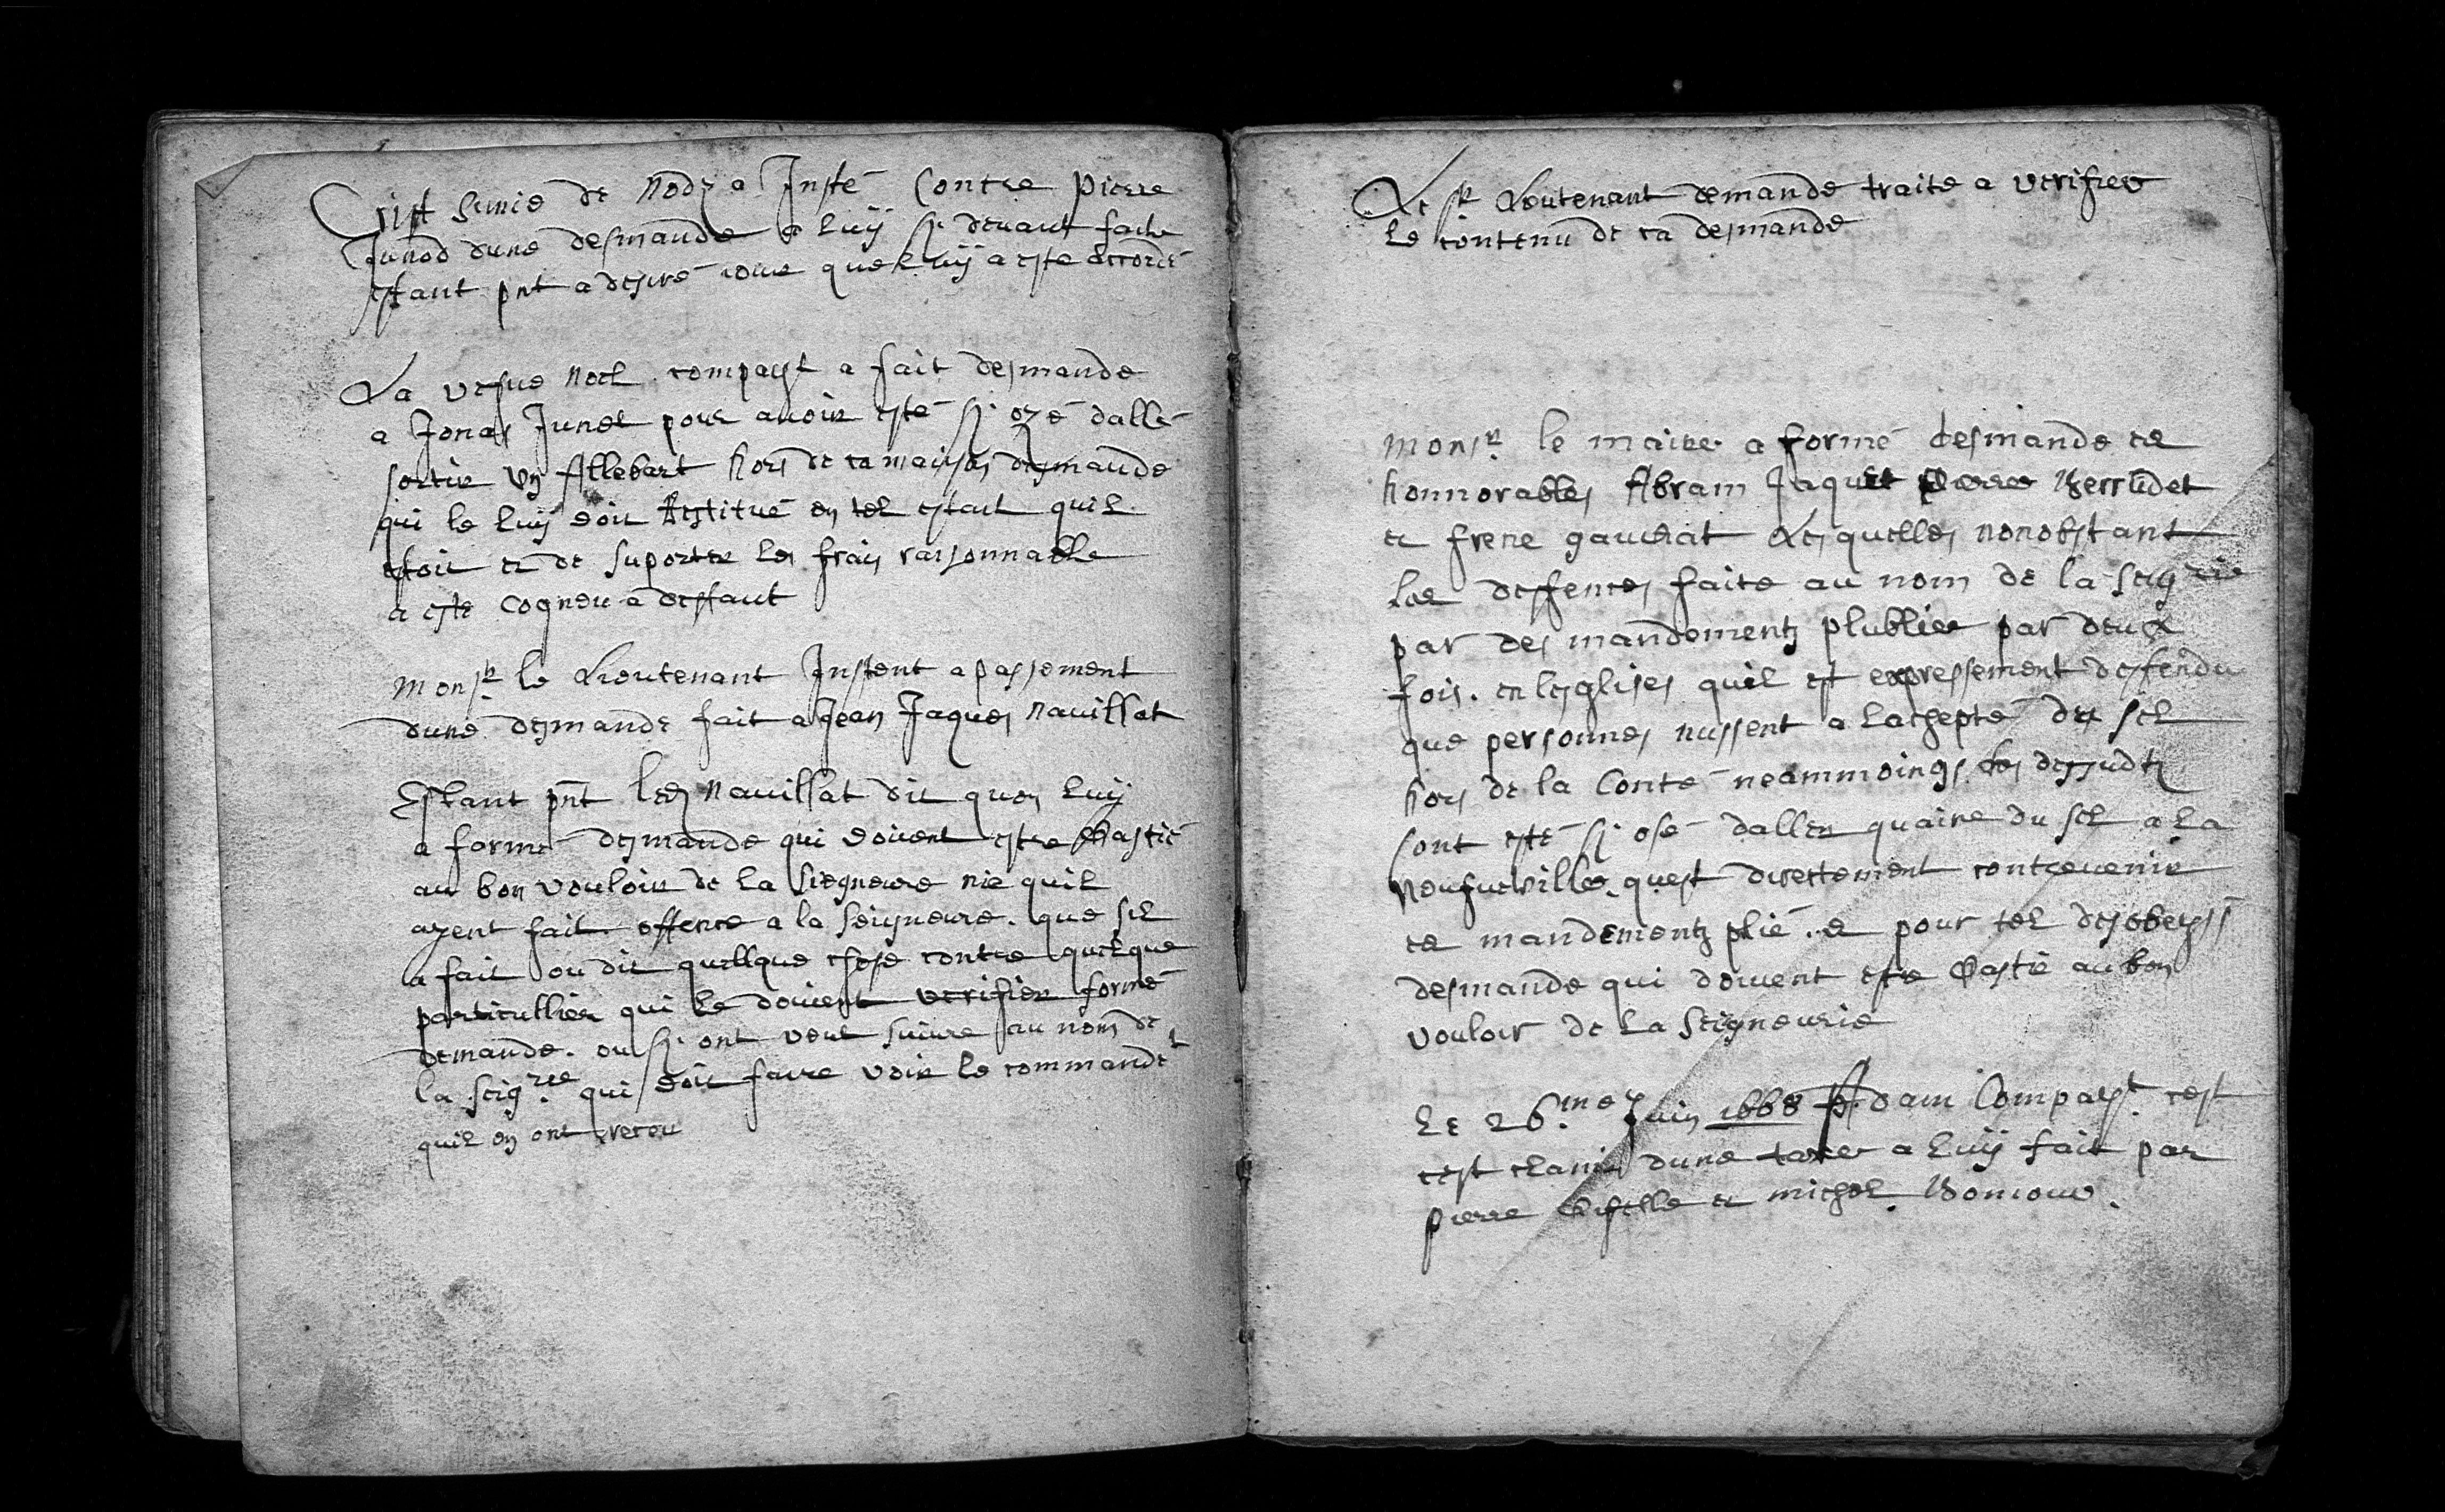 Crist Sunié de Nodz a Insté Contre Pierre
Junod dune desmande a luÿ sy deuant faite
estant pnt a desiré iour que luÿ a este accordé
La vefue Noel compayst a fait desmande
a Jonas Junod pour auoir esté sy ozé dallé
sortir vn Allebart hors de ca maison desmande
qui le luÿ doit Restitué en tel estaut quil
estoit et de suporter les frais raysonnable
a esté cogneu a deffaut
Monsr. le Lieutenant Instent a passement
dune desmande fait a Jean Jaques Nauillat
Estant pnt led Nauillat dit quon luÿ
a formé desmande qui doiuent estre chastié
au bon vouloir de la siegneure nie quil
ayent fait offence a la seigneure. que sil
a fait ou dit quelque chose contre quelque
particullier qui le doiuent verifier formé
demande. ou sy ont veut suiure au nom de
la seigrie qui doit faire voir le commandet
quil en ont receu
Le sr Lieutenant demande traite a verifier
le contenu de ca desmande
Monsr. le maire a formé desmande ce
honnorables Abram Jaquet Verrudet
et frene gauchat Lesquelles nonobstant
les deffences faite au nom de la seigrie
par des mandements plublier par deux
fois. en lesglises quil est expressement deffendu
que personnes nussent a lachepté du sel
hors de la Conté neammoings les desusdts
sont esté sy osé daller quaire du sel a la
Neufueville. quest directement contreuenir
ce mandements plié. et pour tel desobeyss
desmande qui doiuent estre chastié au bon
vouloir de la seigneurie
Le 26.me Juin 1668 Adam Compayst. cest
cest clamé dune taxe a luÿ fait par
pierre et michel Bonjour.